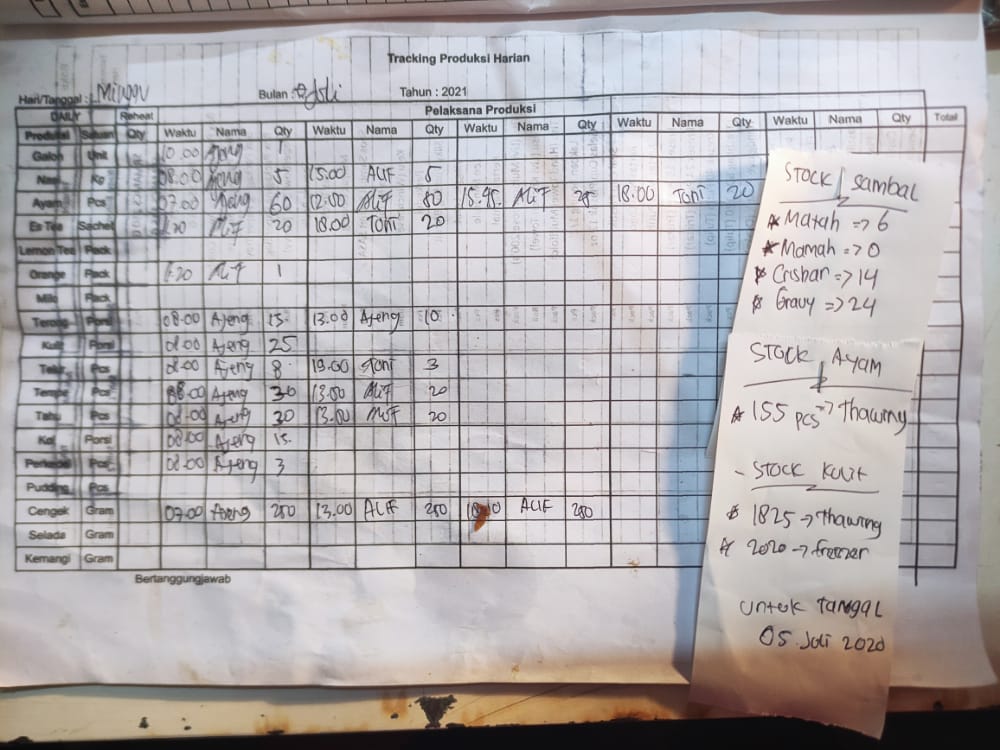 Tracking Produksi Harian
Hari/Tanggal : Minggu Bulan : Juli Tahun : 2021
DAILY Reheat Pelaksana Produksi
Produksi Satuan Qty Waktu Nama Qty Waktu Nama Qty Waktu Nama Qty Waktu Nama Qty Waktu Nama Qty Total
Galon Unit 10.00 Ajeng 1
Nasi Kg 08.00 Ajeng 5 15.00 ALIF 5
Ayam Pcs 07.00 Ajeng 60 12.00 ALIF 80 15.45. ALIF 18.00 TONI 20
Es Tea Sachet ALIF 20 18.00 TONI 20
Lemon Tea Pack
Orange Pack ALIF 1
Milo Pack
Terong Porsi 08.00 Ajeng 15. 13.00 Ajeng 10.
Kulit Porsi 08.00 Ajeng 25
Telur Pcs 08.00 Ajeng 8. 19.00 TONI 3
Tempe Pcs 08.00 Ajeng 30 13.00 ALIF 20
Tahu Pcs 08.00 Ajeng 30 13.00 ALIF 20
Kol Porsi 08.00 Ajeng 15.
Perkedel Pcs 08.00 Ajeng 3
Pudding Pcs
Cengek Gram 07.00 Ajeng 250 13.00 ALIF 250 ALIF 250
Selada Gram
Kemangi Gram
Bertanggungjawab
STOCK Sambal
* Marah => 6
* Mamah => 0
* Crisbar => 14
* Gravy => 24
STOCK AYAM
* 155 pcs => Thawing
- STOCK KULIT
* 1825 -> Thawing
* 2020 -> freezer
untuk Tanggal
05 Juli 2020